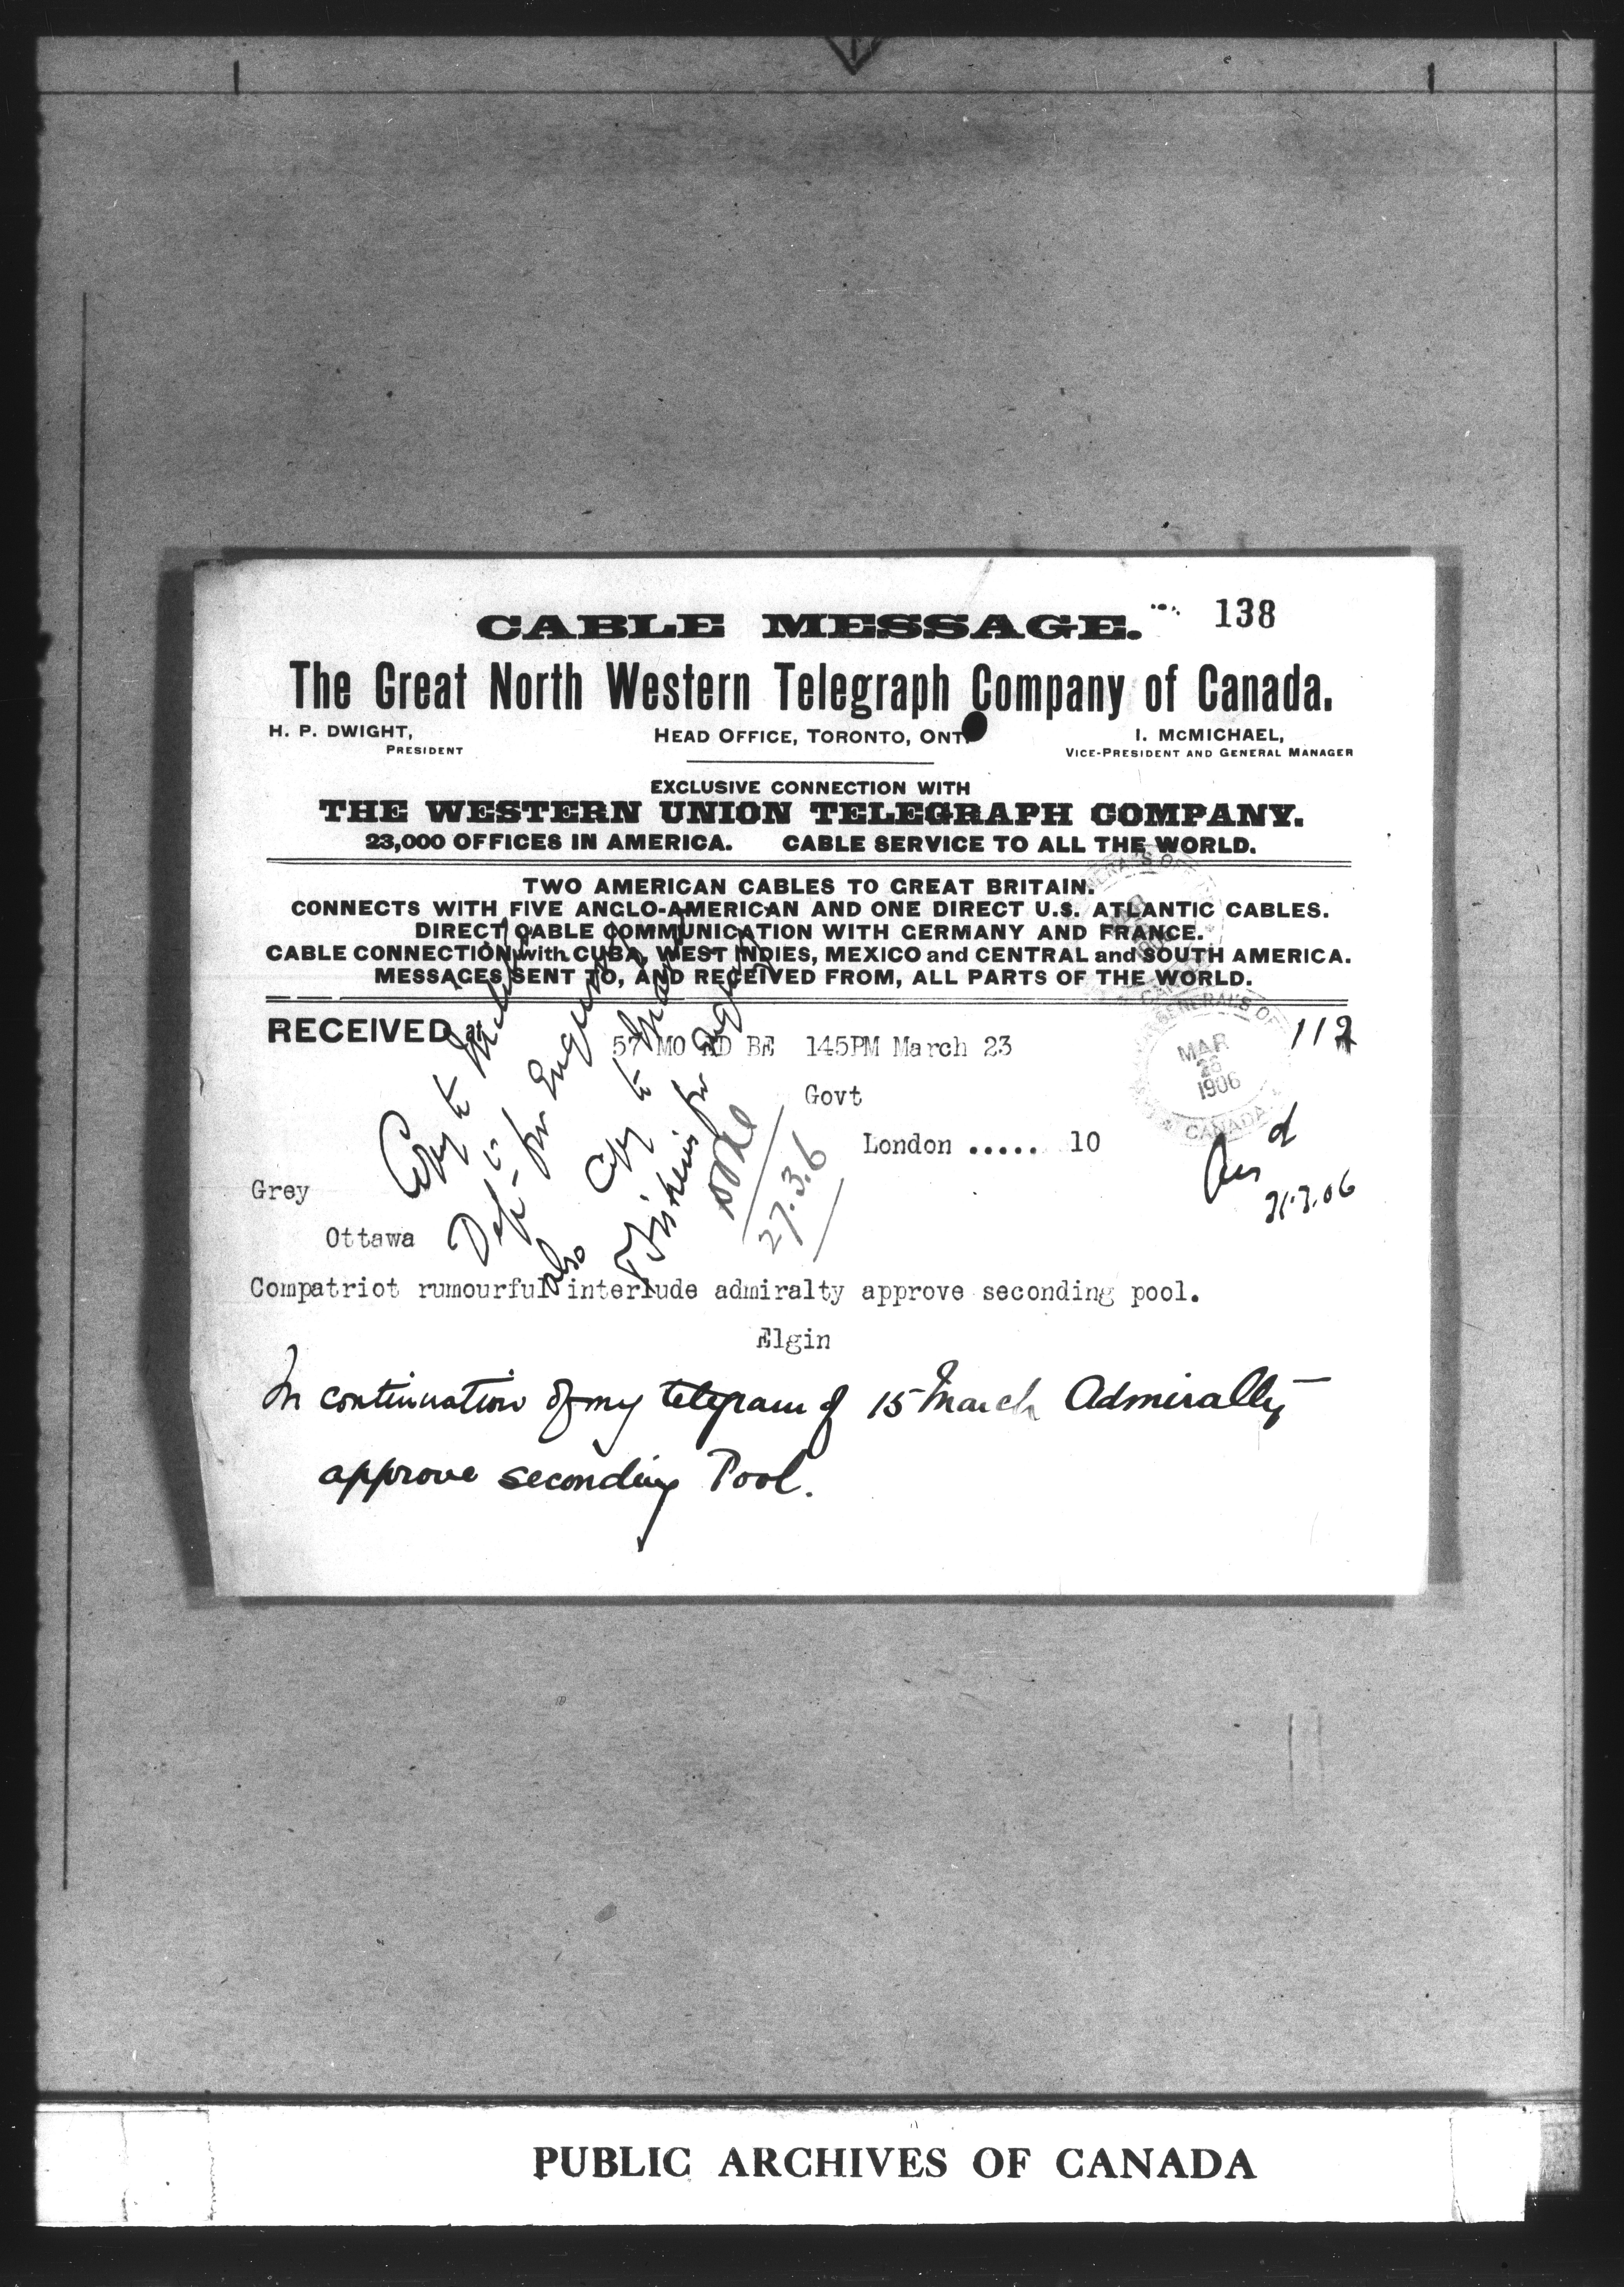 CABLE MESSAGE. 138
The Great North Western Telegraph Company of Canada.
H. P. DWIGHT, PRESIDENT
HEAD OFFICE, TORONTO, ONT.
I. MCMICHAEL, VICE-PRESIDENT AND GENERAL MANAGER
EXCLUSIVE CONNECTION WITH
THE WESTERN UNION TELEGRAPH COMPANY.
23,000 OFFICES IN AMERICA. CABLE SERVICE TO ALL THE WORLD.
TWO AMERICAN CABLES TO GREAT BRITAIN.
CONNECTS WITH FIVE ANGLO-AMERICAN AND ONE DIRECT U.S. ATLANTIC CABLES.
DIRECT CABLE COMMUNICATION WITH GERMANY AND FRANCE.
CABLE CONNECTION with CUBA, WEST INDIES, MEXICO and CENTRAL and SOUTH AMERICA.
MESSAGES SENT TO, AND RECEIVED FROM, ALL PARTS OF THE WORLD.
RECEIVED at
57 MO RD BE 145PM March 23
112
GENERAL'S OF
MAR
26
1906
CANADA
Govt
London ..... 10
Grey
Ottawa
Copy to
Dept for
also Copy to
Fisheries for
27.3.6
Compatriot rumourful interlude admiralty approve seconding pool.
Elgin
In continuation of my telegram of 15 March Admiralty
approve seconding Pool.
PUBLIC ARCHIVES OF CANADA